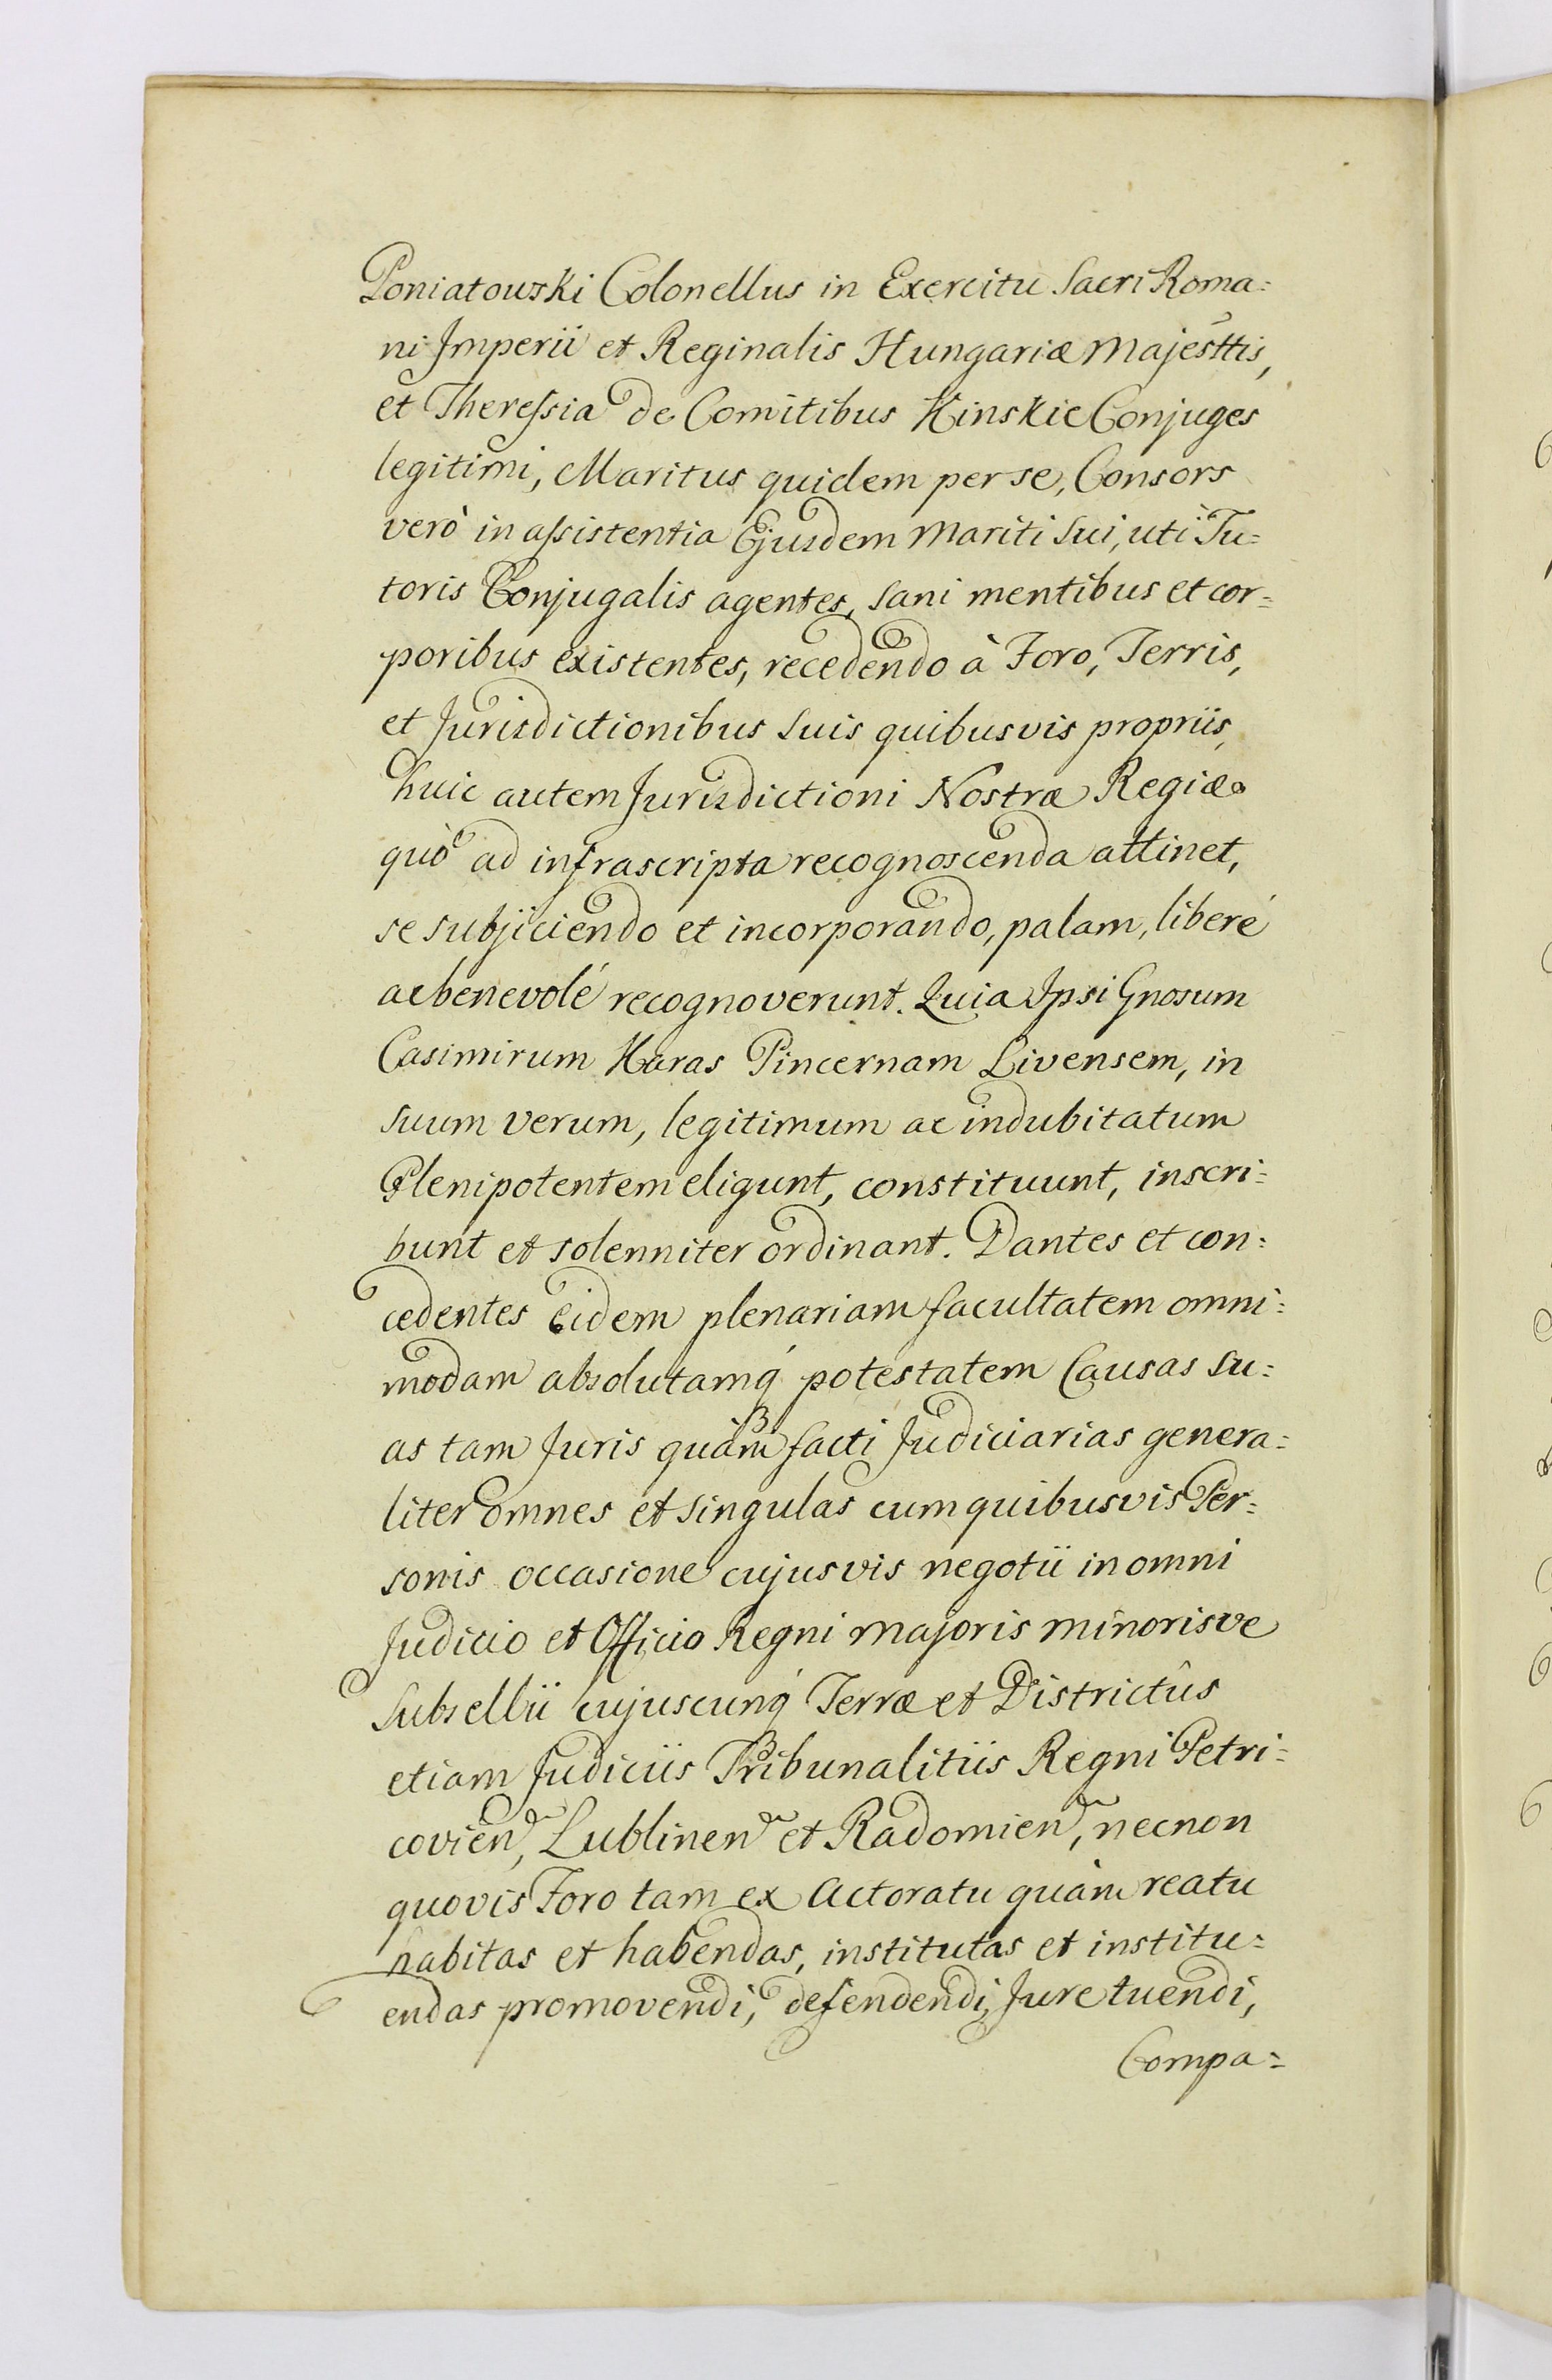 Poniatowski Colonellus in Exercitu Sacri Roma=
ni Imperii et Reginalis Hungariæ Majesttis,
et Theressia de Comitibus Kinskie Conjuges
legitimi, Maritus quidem per se, Consors
verò in assistentia Ejusdem Mariti sui, uti Tu=
toris Conjugalis agentes, sani mentibus et cor=
poribus existentes, recedendo à Foro, Terris,
et Jurisdictionibus suis quibusvis propriis,
huic autem Jurisdictioni Nostræ Regiæ
quò ad infrascripta recognoscenda attinet,
se subjiciendo et incorporando, palam, liberé
ac benevolé recognoverunt. Quia Ipsi Gnosum
Casimirum Karas Pincernam Livensem, in
suum verum, legitimum ac indubitatum
Plenipotentem eligunt, constituunt, inscri=
bunt et solenniter ordinant. Dantes et con=
cedentes Eidem plenariam facultatem omni=
modam absolutamq́ potestatem Causas su=
as tam Juris quàm facti Judiciarias genera=
liter omnes et singulas cum quibusvis Per=
sonis occasione cujusvis negotii in omni
Judicio et Officio Regni Majoris minorisve
Subsellii cujuscunq́ Terræ et Districtûs
etiam Judiciis Tribunalitiis Regni Petri=
covien, Lublinen et Radomien, necnon
quovis Foro tam ex Actoratu quàm reatu
habitas et habendas, institutas et institu=
endas promovendi, defendendi, Jure tuendi,
Compa=